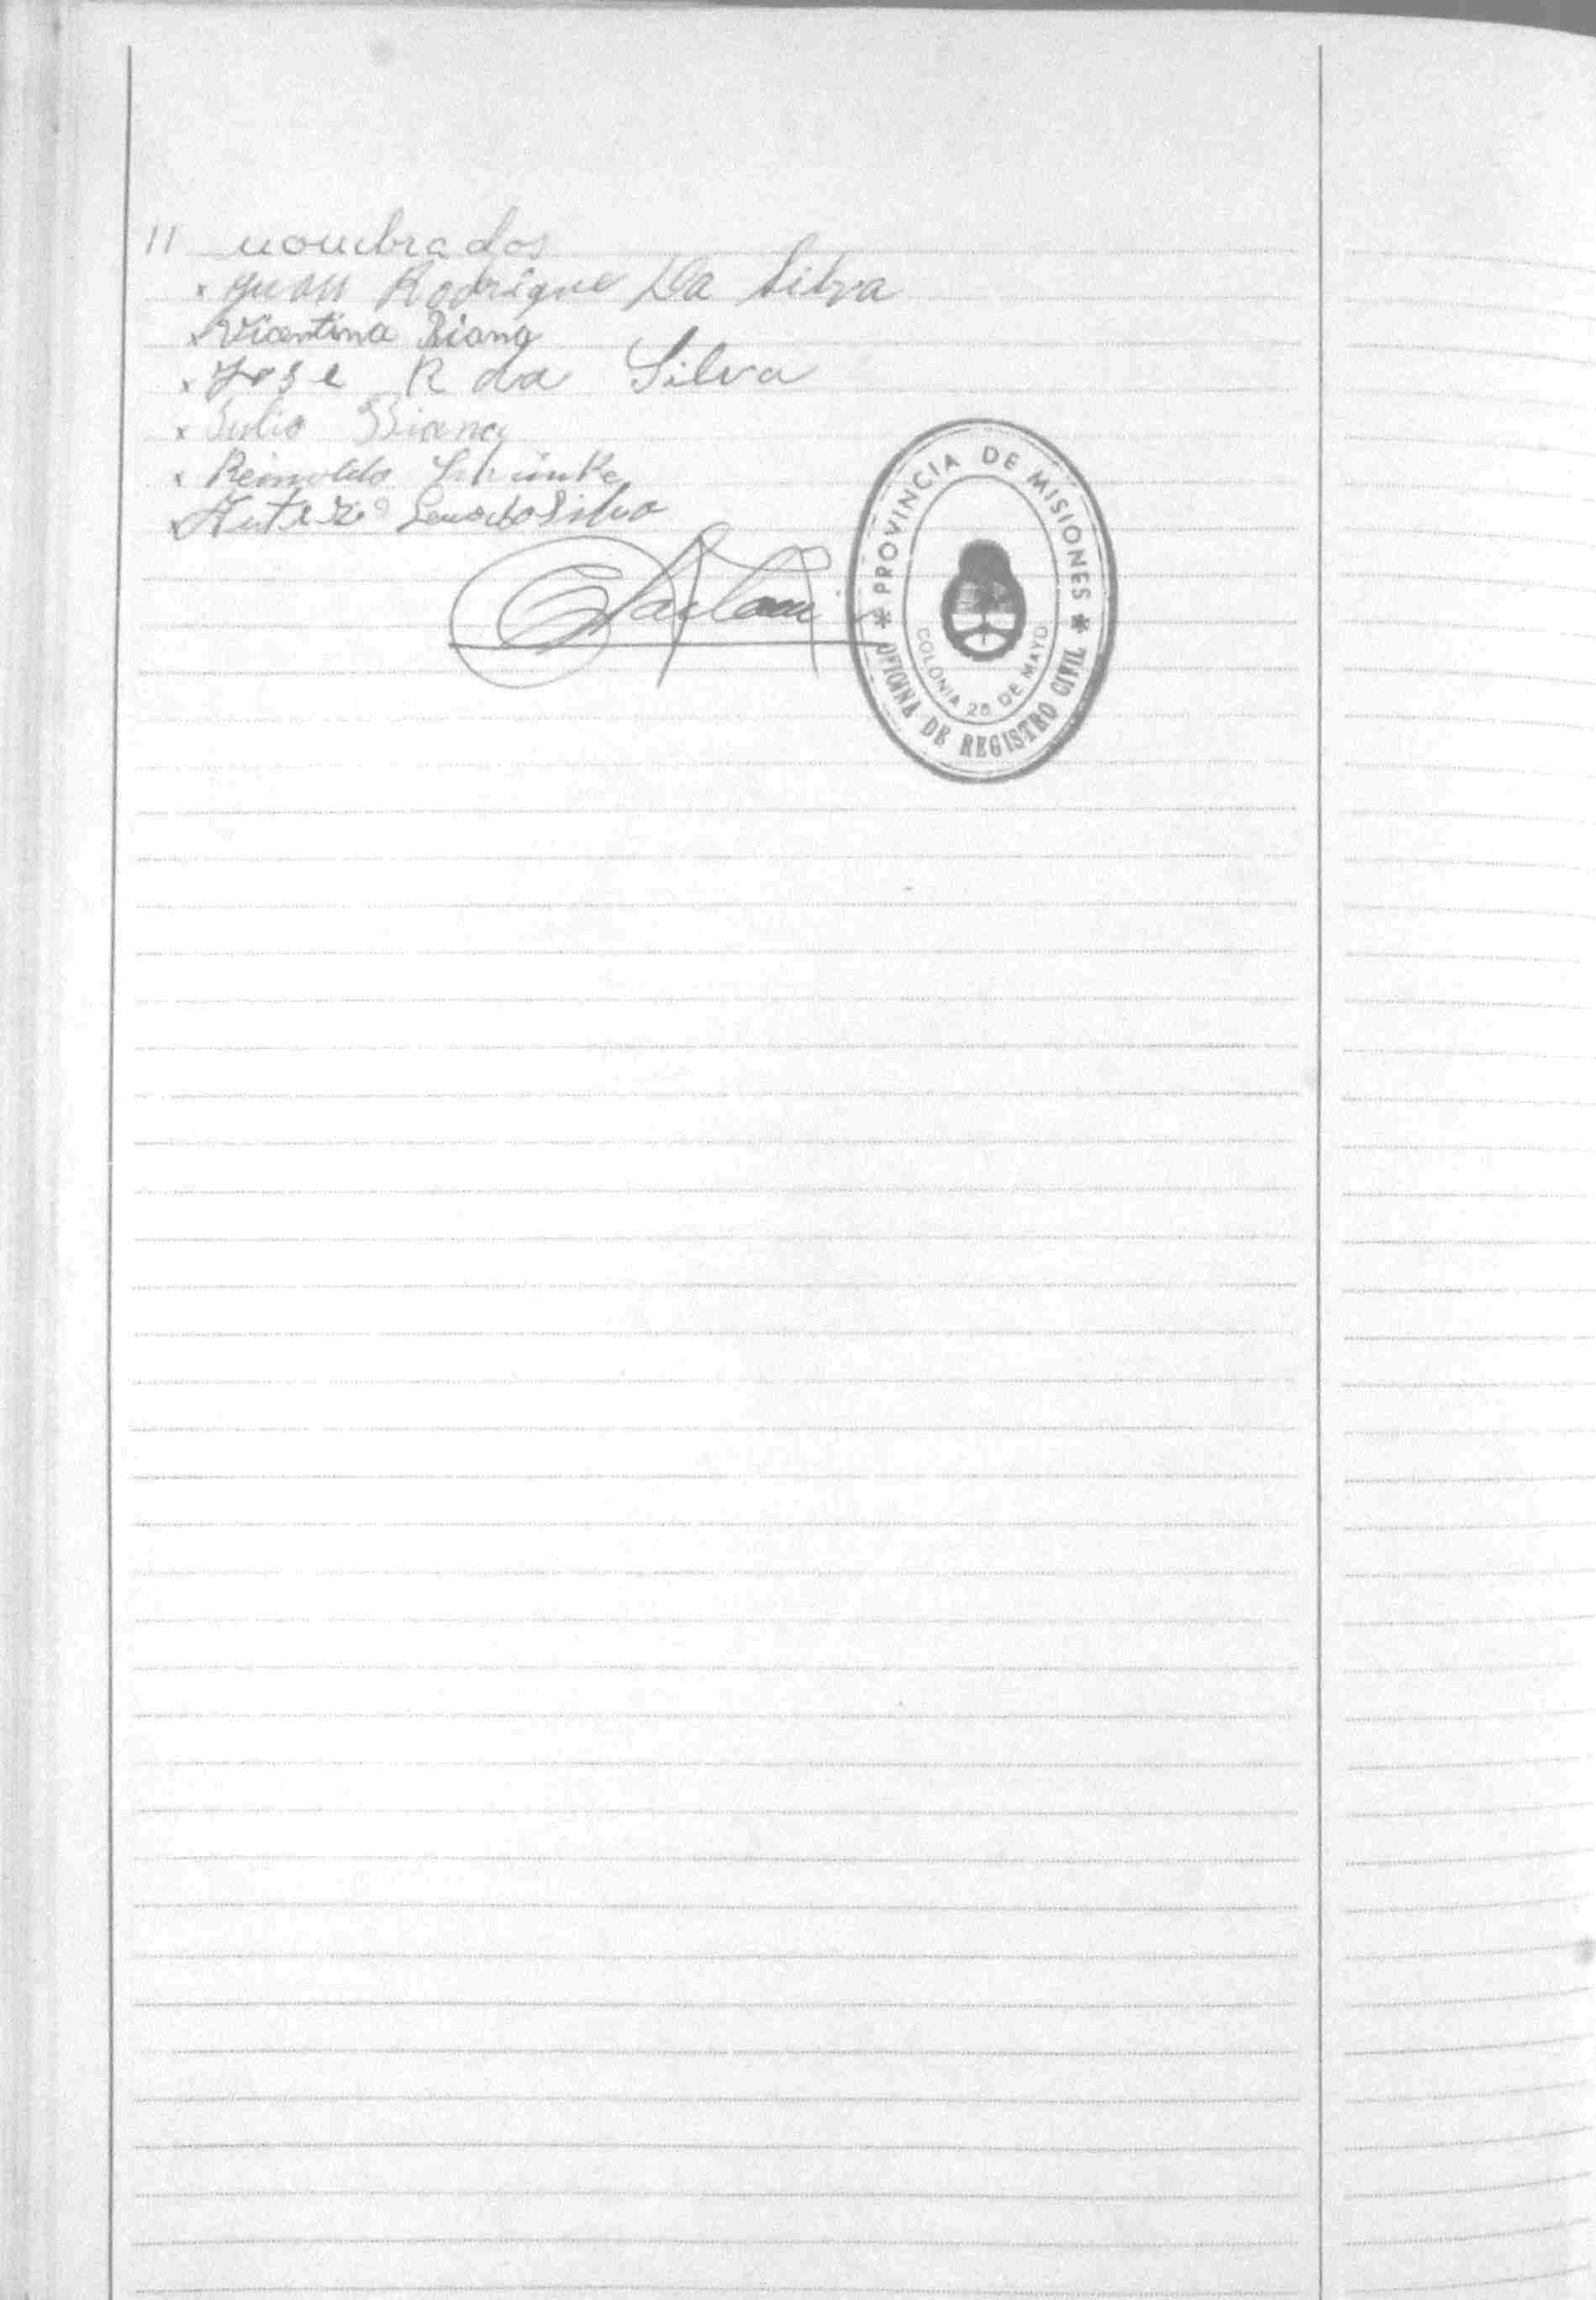 11 nombrados
x Juan Rodrigue Da Silva
x Vicentina Biana
x Jose R da Silva
x Julio Biana
x Reinoldo Schünke
x
PROVINCIA DE MISIONES
OFICINA DE REGISTRO CIVIL
COLONIA 25 DE MAYO